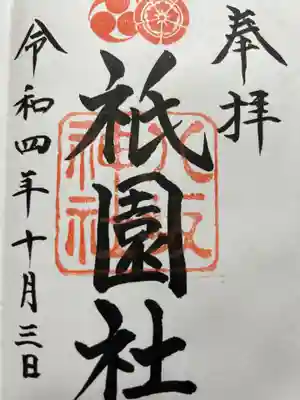 奉拝
祇園社
八坂神社
令和四年十月三日